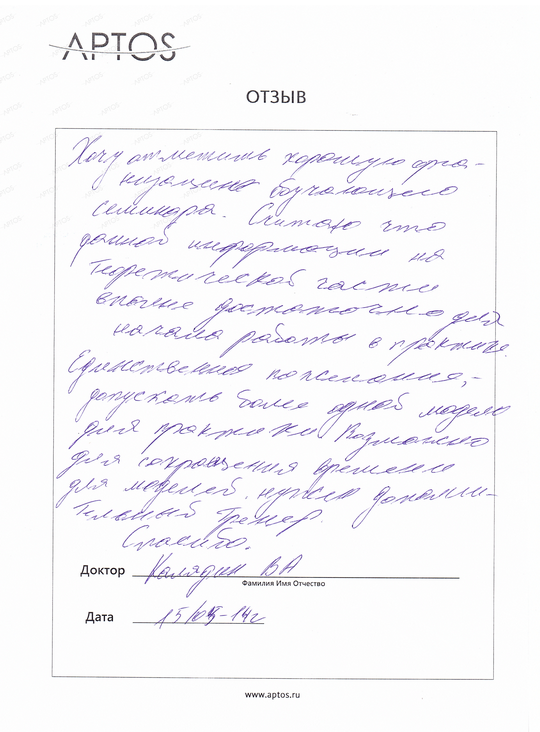 APTOS
ОТЗЫВ
Хочу отметить хорошую орга-
низацию обучающего
семинара. Считаю что
данной информации на
теоретической части
вполне достаточно для
начала работы в практике.
Единственно пожелания, -
допускать более одной модели
для практики. Возможно
для сокращения времени
для моделей, нужен дополни-
тельный тренер.
Спасибо.
Доктор Калядин ВА
Фамилия Имя Отчество
Дата 15/ -14г
www.aptos.ru